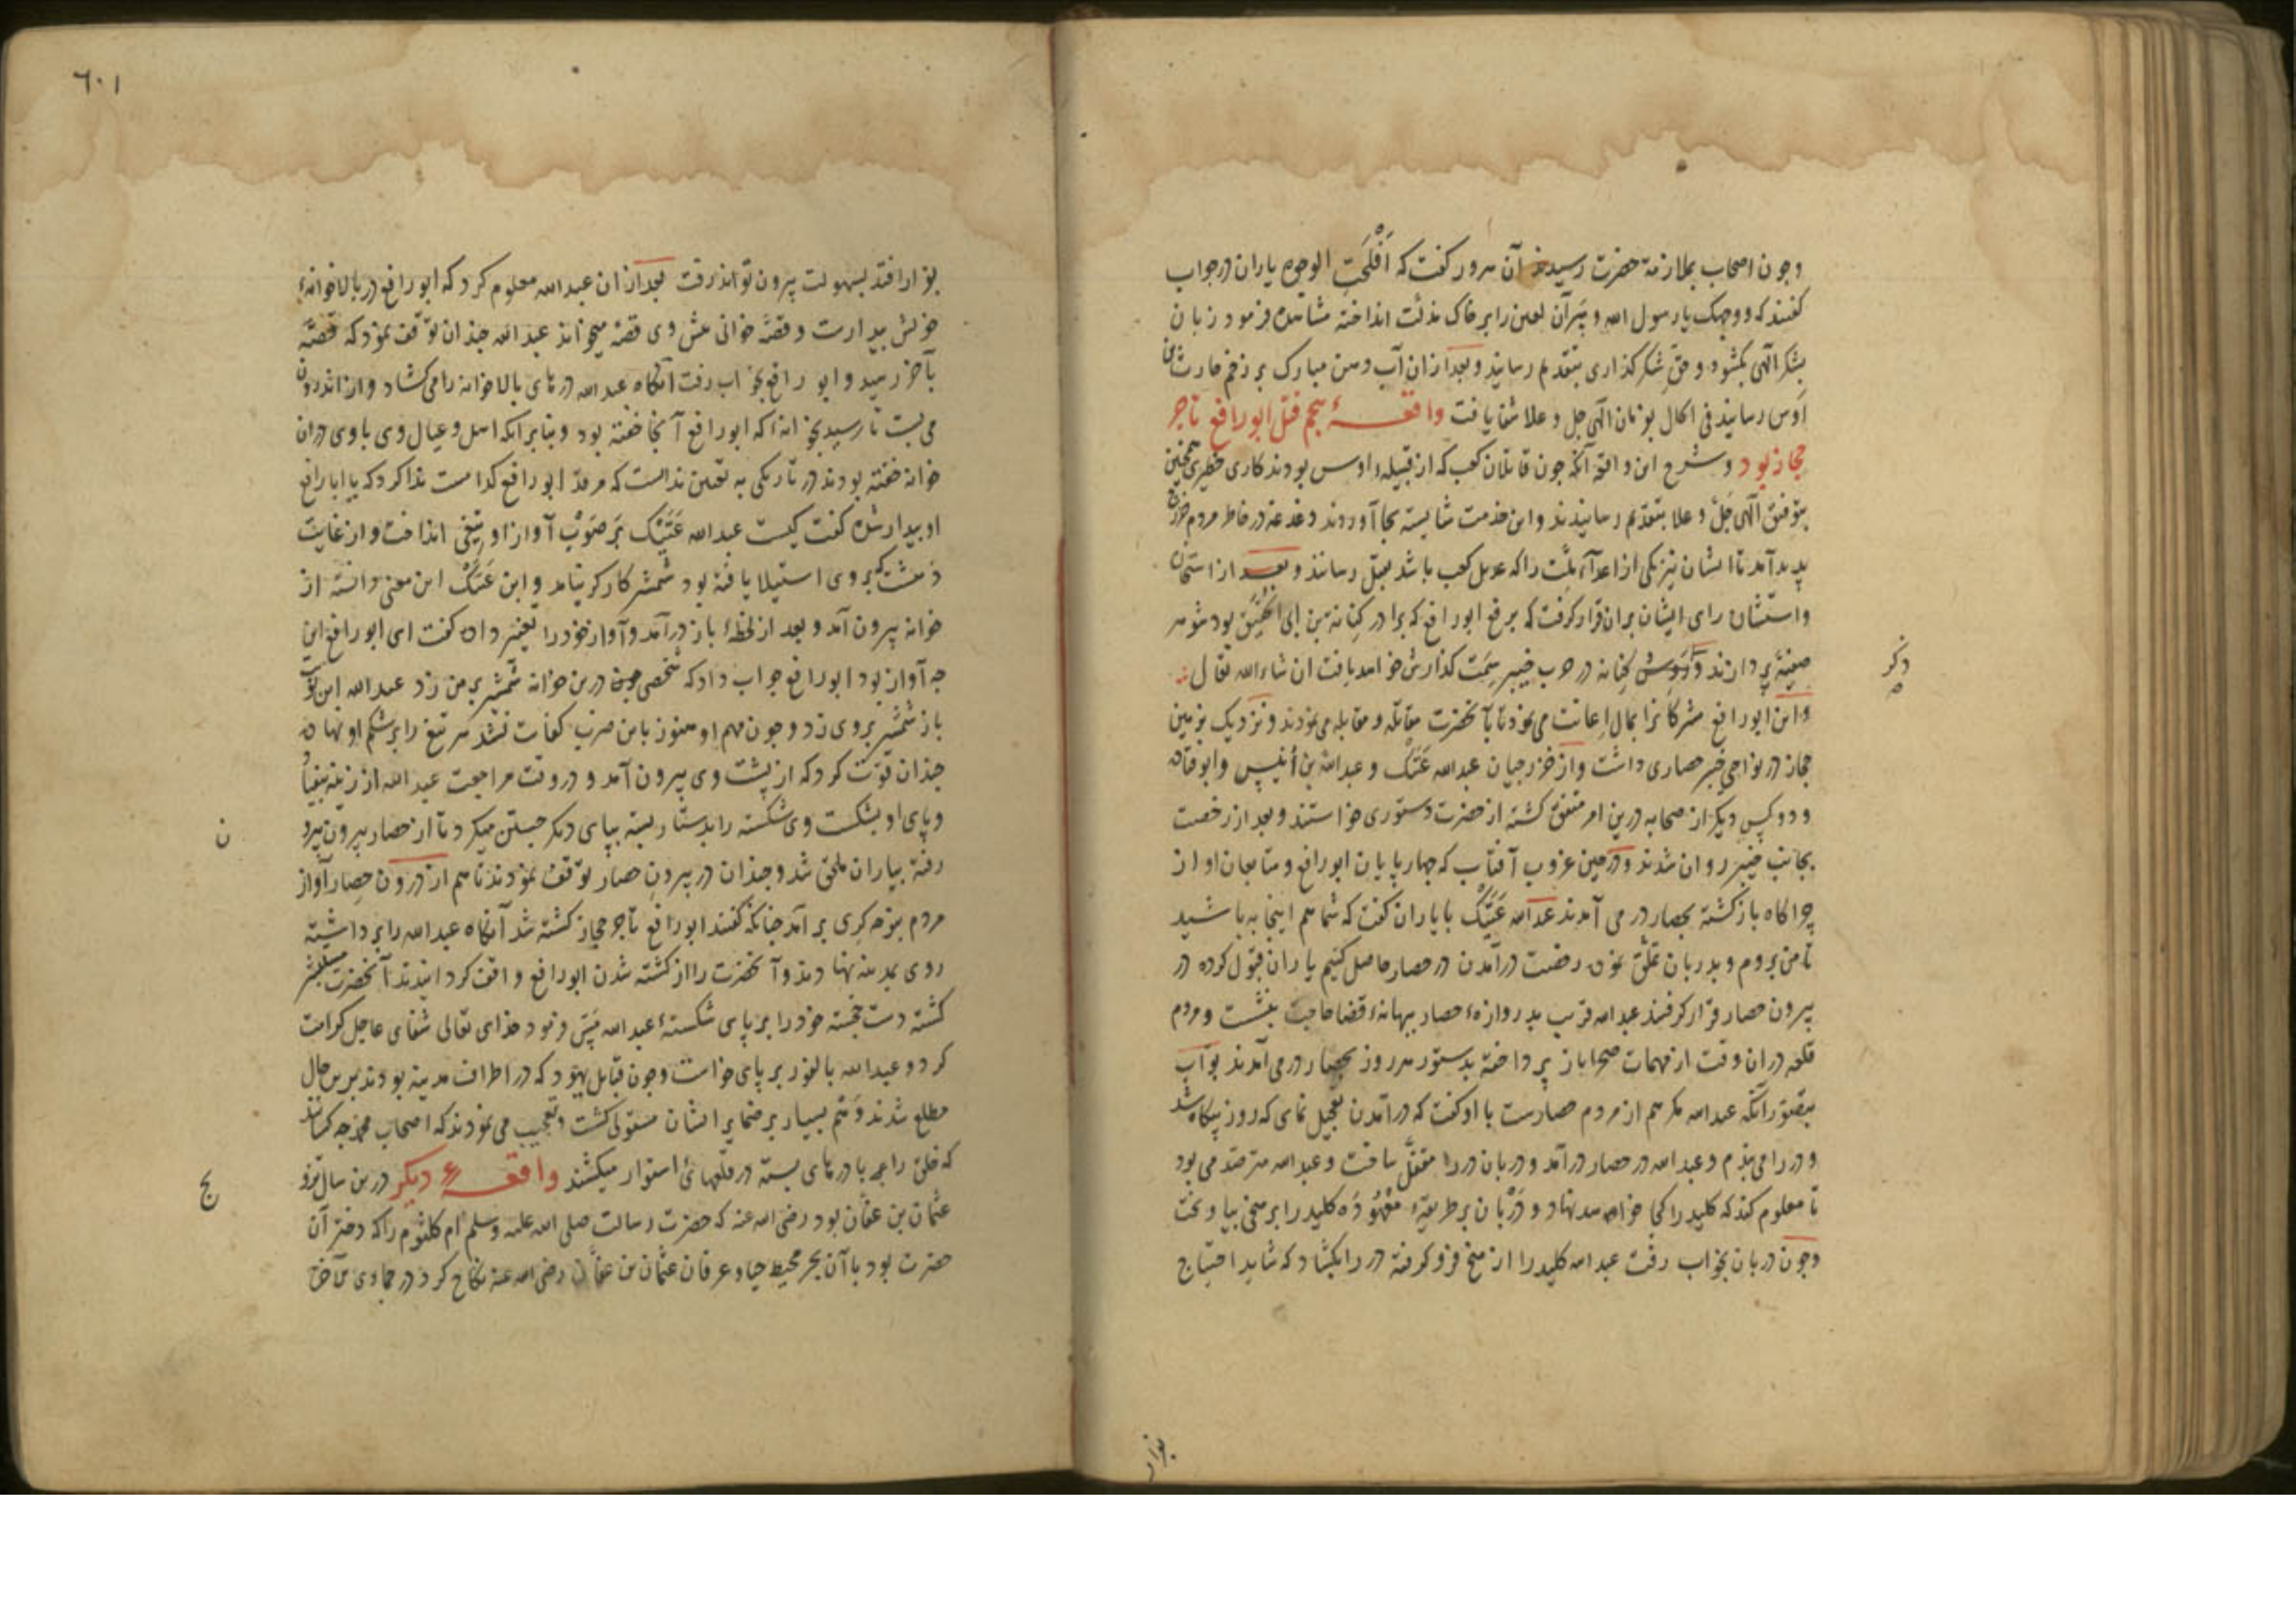 وچون اصحاب بملازمة حضرت رسیدند آن سرور کفت که اَفْلَحَتِ الوجوه یاران در جواب
کفتند که ووجهک یا رسول الله و سَرِ آن لعین را بر خاک مذلت انداخته مشاهده فرمود زبان
بشکر الهی بکشود و حقّ شکرکذاری بتقدیم رسانید و بعد از ان آب دهن مبارک بر زخم حارث بن
اَوْس رسانید فی الحال بفرمان الهی جل و علا شفا یافت واقعهٔ پنجم قتل ابو رافع تاجر
حجاز بود و شرح این واقعه آنکه چون قاتلان کعب که از قبیلهء اوس بودند کاری خطیری همچنین
بتوفیق الهی جَلّ و علا بتقدیم رسانیدند و این خدمت شایسته بجا آوردند دغدغه در خاطر مردم خزرج
پدید آمد تا ایشان نیز یکی از اعدآء ملّت را که عدیل کعب باشد بقتل رسانند و بعد از استخاره
واستشاره رای ایشان بران قرار کرفت که برفع ابو رافع که برادر کِنانه بن ابی الحُقَیْق بود شوهر
صفیّه پردازند و کنانه در حرب خیبر سِمَت کذارش خواهد یافت ان شاء الله تعالی
واین ابو رافع مشرکانرا بمال اِعانت می نمود تا بآنحضرت مقاتله و مقابله می نمودند و نزدیک بزمین
حجاز در نواحی خیبر حصاری داشت و از خزرجیان عبد الله عَتیک و عبد الله بن اُنَیس و ابو قتاده
و دو کس دیکر از صحابه درین امر متفق کشته از حضرت دستوری خواستند و بعد از رخصت
بجانب خیبر روان شدند و در حین غروب آفتاب که چهار پایان ابو رافع و متابعان او از
چراکاه باز کشته بحصار در می آمدند عبد الله عَتیک با یاران کفت که شما هم اینجا به باشید
تا من بروم و بدربان تملّق نموده رخصت درآمدن در حصار حاصل کنیم یاران قبول کرده در
بیرون حصار قرار کرفتند عبد الله قریب بدروازهء حصار ببهانهء قضا حاجت بنشست و مردم
قلعه دران وقت از مهمات صحرا باز پرداخته بدستور هر روز بحصار در می آمدند بوّاب
بتصوّر آنکه عبد الله مکر هم از مردم حصارست با او کفت که درآمدن تعجیل نمای که روز بیکاه شد
و در را می بندم و عبد الله در حصار درآمد و دربان در را مقفّل ساخت و عبد الله مترصّد می بود
تا معلوم کند که کلید را کجا خواهد نهاد و دَرْبان بر طریقهء مَعْهُوده کلید را بر میخی بیاویخت
وچون دربان بخواب رفت عبد الله کلید را از میخ فرو کرفته در را بکشاد که شاید احتیاج
ذکر
بفرار
٦٠١
بفرار افتد بسهولت بیرون تواند رفت بعد از ان عبد الله معلوم کرد که ابو رافع در بالاخانهء
خویش بیدارست و قصّه خوانی پیش وی قصّه میخواند عبد الله چندان توقّف نمود که قصّه
بآخر رسید و ابو رافع بخواب رفت آنکاه عبد الله درهای بالاخانه را می کشاد و از اندرون
می بست تا رسید بخانه که ابو رافع آنجا خفته بود و بنا بر آنکه اهل و عیال وی با وی دران
خانه خفته بودند در تاریکی به تعیین ندانست که مرقد ابو رافع کدامست ندا کرد که یا ابا رافع
او بیدار شده کفت کیست عبد الله عَتیْک بَر صَوْبِ آواز او تیغی انداخت و از غایت
دهشت که بر وی استیلا یافته بود شمشیر کارکر نیامد و ابن عَتیکْ این معنی دانسته از
خانه بیرون آمد و بعد از لحظهٔ باز درآمد و آواز خود را تغییر داده کفت ای ابو رافع این
چه آواز بود ابو رافع جواب داد که شخصی درین خانه شمشیر بر من زد عبد الله این نوبت
باز شمشیر بر وی زد و چون مهم او هنوز باین ضرب کفایت نشد سر تیغ را بر شکم او نهاده
چندان قوّت کرد که از پشت وی بیرون آمد و در وقت مراجعت عبد الله از زینه بیفتاد
و پای او بشکست وی شکسته را بدستار بسته بپای دیکر جستن میکرد تا از حصار بیرون
رفته بیاران ملحق شد و چندان در بیرون حصار توقّف نمودند تا هم از درون حصار آواز
مردم بنوحه کری بر آمد چنانکه کفتند ابو رافع تاجر حجاز کشته شد آنکاه عبد الله را برداشته
روی بمدینه نهادند و آنحضرت را از کشته شدن ابو رافع واقف کردانیدند آنحضرت
کشته دست خجسته خود را بر پای شکستهء عبد الله خدای تعالی شفای عاجل کرامت
کرد و عبد الله بالفور بر پای خواست و چون قبایل یهود که در اطراف مدینه بودند برین حال
مطلع شدند وَهْم بسیار بر ضمایر ایشان مستولی کشت و تعجب می نمودند که اصحاب محمد چه کسانند
که خلق را با درهای بسته در قلعهائ استوار میکشند واقعهء دیکر درین سال تزوج
عثمان بن عفّان بود رضی الله عنه که حضرت رسالت صلی الله علیه وسلم ام کلثوم را که دختر آن
حضرت بود با آن بحر محیط حیا و عرفان عثمان بن عفّان رضی الله عنه نکاح کرد در جمادی
ن
ج